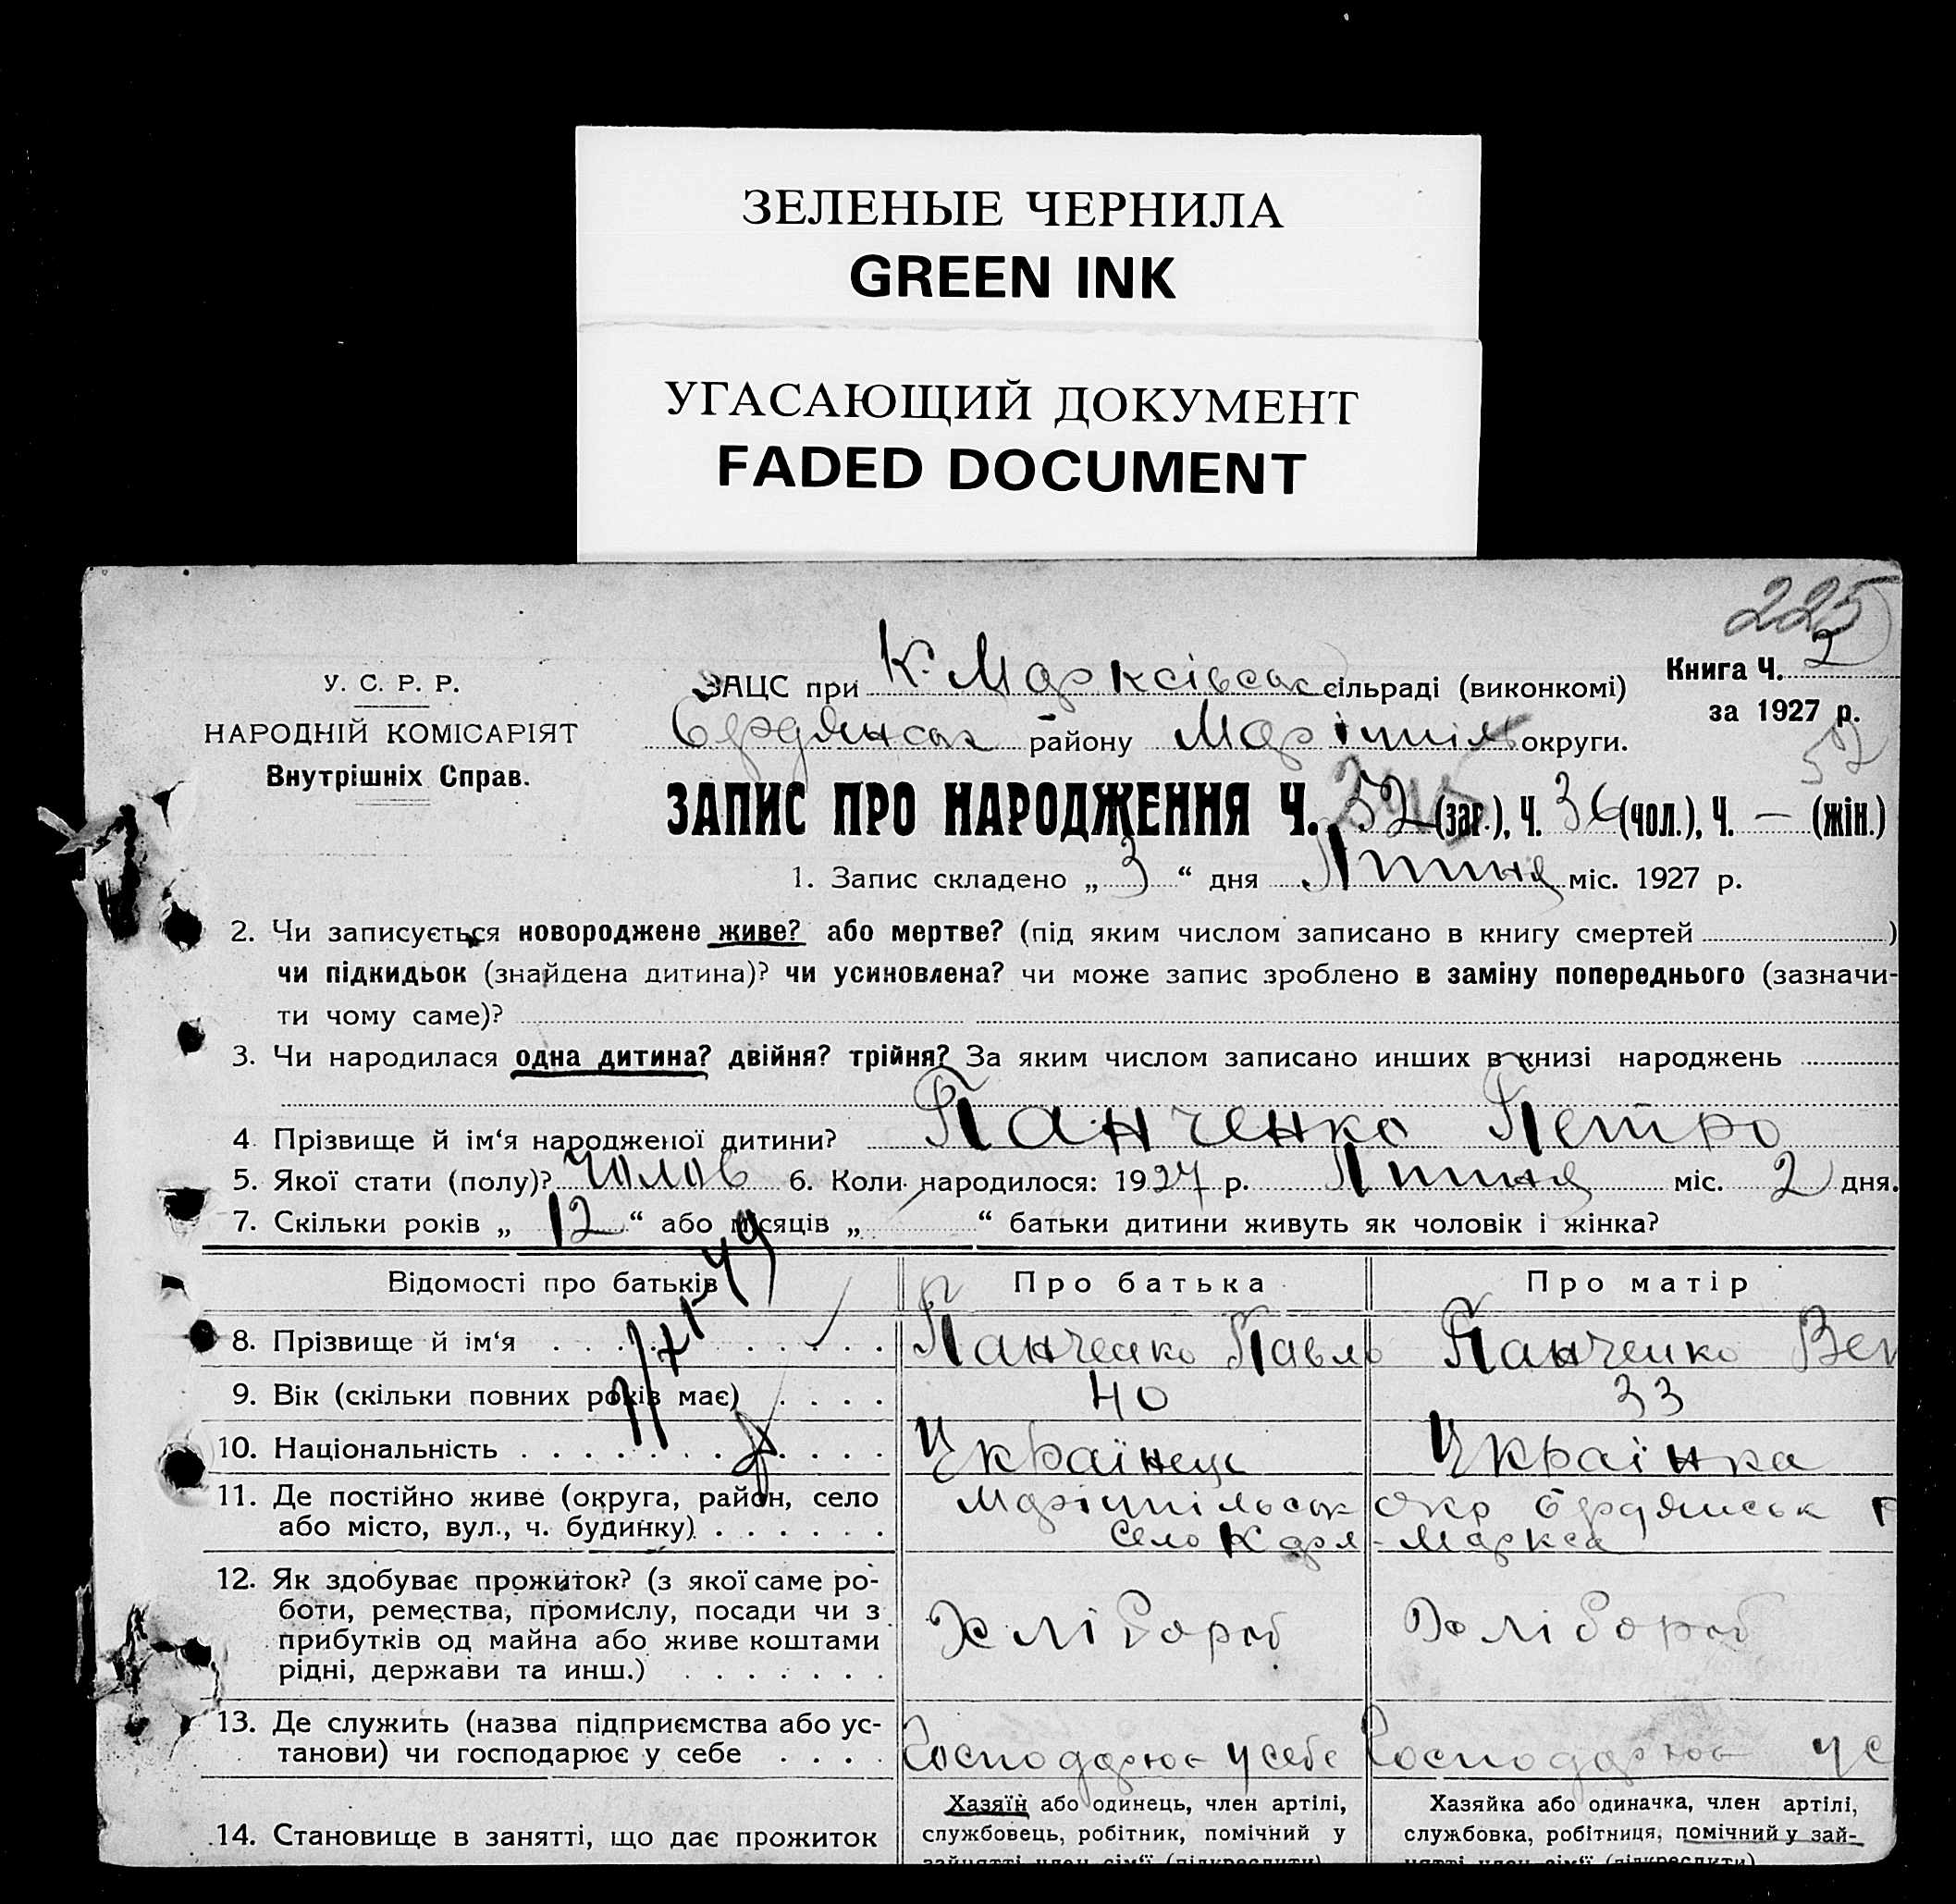 ЗЕЛЕНЫЕ ЧЕРНИЛА
GREEN INK
УГАСАЮЩИЙ ДОКУМЕНТ
FADED DOCUMENT
225
У. С. Р. Р.
НАРОДНІЙ КОМІСАРІЯТ
Внутрішніх Справ.
ЗАЦС при К. Марксівськ сільраді (виконкомі)
Бердянськ району Маріюпіл округи.
Книга Ч. 2
за 1927 р.
52
ЗАПИС ПРО НАРОДЖЕННЯ Ч. 52 (заг.), Ч. 36 (чол.), Ч. — (жін.)
1. Запис складено „ 3 “ дня Липня міс. 1927 р.
2. Чи записується новороджене живе? або мертве? (під яким числом записано в книгу смертей )
чи підкидьок (знайдена дитина)? чи усиновлена? чи може запис зроблено в заміну попереднього (зазначи-
ти чому саме)?
3. Чи народилася одна дитина? двійня? трійня? За яким числом записано инших в книзі народжень
4. Прізвище й ім‘я народженої дитини? Панченко Петро
5. Якої стати (полу)? Чолов 6. Коли народилося: 1927 р. Липня міс. 2 дня.
7. Скільки років „ 12 “ або місяців „ “ батьки дитини живуть як чоловік і жінка?
Відомості про батьків Про батька Про матір
8. Прізвище й ім‘я Панченко Павло Панченко
9. Вік (скільки повних років має) 40 33
10. Національність Українець Українка
11. Де постійно живе (округа, район, село Маріюпільськ окр Бердянськ р
або місто, вул., ч. будинку) Село Карл-Маркса
12. Як здобуває прожиток? (з якої саме ро-
боти, ремества, промислу, посади чи з
прибутків од майна або живе коштами
рідні, держави та инш.)
Хлібороб Хлібороб
13. Де служить (назва підприємства або ус-
танови) чи господарює у себе Господарює у себе Господарює у с
14. Становище в занятті, що дає прожиток
Хазяїн або одинець, член артілі,
службовець, робітник, помічний у
зайнятті член сім‘ї (підкреслити)
Хазяйка або одиначка, член артілі,
службовка, робітниця, помічний у зай-
нятті член сім‘ї (підкреслити)